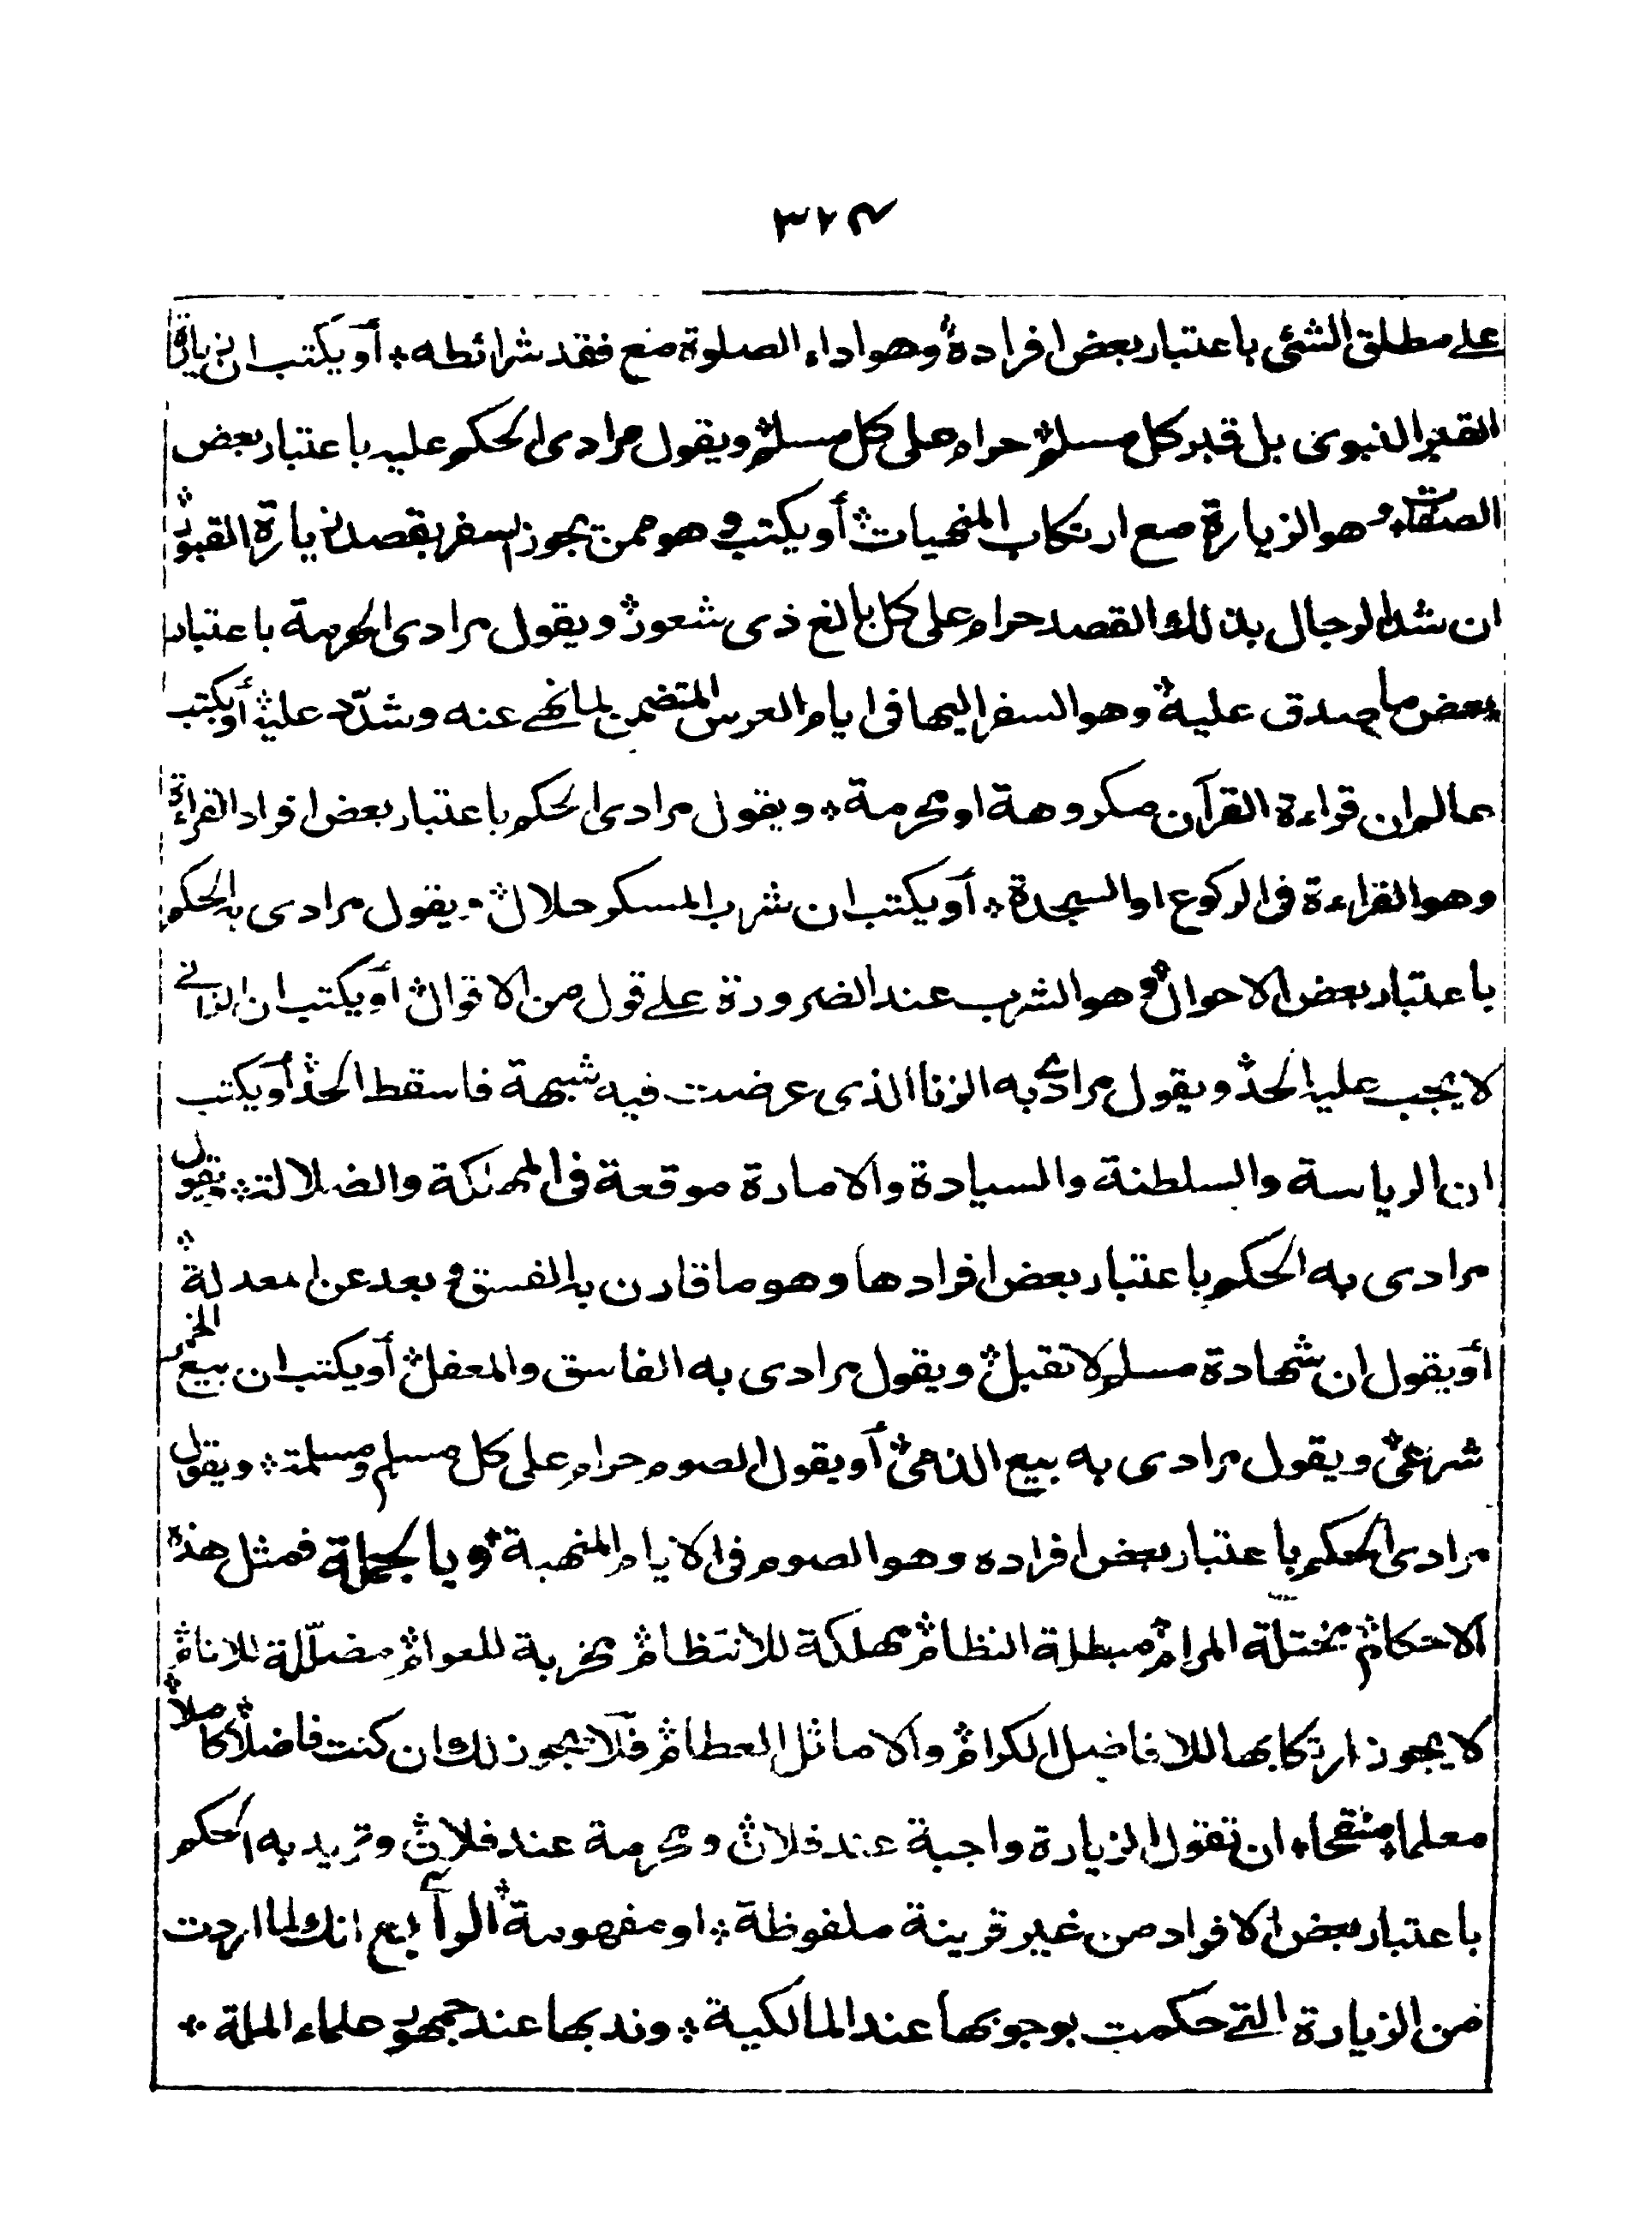 ٣٢٤
على مطلق الشئ باعتبار بعض افراده؞ وهو اداء الصلوة مع فقد شرائطه؞ أو يكتب ان زيارة
القبر النبوى بل قبر كل مسلم؞ حرام على كل مسلم؞ ويقول مرادى الحكم عليه باعتبار بعض
الصفات؞ وهو الزيارة مع ارتكاب المنهيات؞ أو يكتب وهو ممن يجوز السفر بقصد زيارة القبور؞
ان شد الرحال بذلك القصد حرام على كل بالغ ذى شعور؞ ويقول مرادى الحرمة باعتبار
بعض ما صدق عليه؞ وهو السفر اليها فى ايام العرس المتضمن لما نهى عنه وشدّد عليه؞ أو يكتب
عالم ان قراءة القرآن مكروهة او محرمة؞ ويقول مرادى الحكم باعتبار بعض افراد القراءة؞
وهو القراءة فى الركوع او السجدة؞ أو يكتب ان شرب المسكر حلال؞ ويقول مرادى به الحكم
باعتبار بعض الاحوال؞ وهو الشرب عند الضرورة على قول من الاقوال؞ أو يكتب ان الزانى
لا يجب عليه الحد؞ ويقول مرادى به الزنا الذى عرضت فيه شبهة فاسقط الحد؞ أو يكتب
ان الرياسة والسلطنة والسيادة والامارة موقعة فى المهلكة والضلالة؞ ويقول
مرادى به الحكم باعتبار بعض افرادها وهو ما قارن به الفسق و بعد عن المعدلة؞
أو يقول ان شهادة مسلم لا تقبل؞ ويقول مرادى به الفاسق والمغفل؞ أو يكتب ان بيع الخمر
شرعى؞ ويقول مرادى به بيع الذمى؞ أو يقول الصوم حرام على كل مسلم ومسلمة؞ ويقول
مرادى الحكم باعتبار بعض افراده وهو الصوم فى الايام المنهية؞ وبالجملة فمثل هذه
الاحكام؞ مختلة المرام؞ مبطلة النظام؞ مهلكة للانتظام؞ مخربة للعوام؞ مضلّلة للانام؞
لا يجوز ارتكابها للافاضل الكرام؞ والاماثل العظام؞ فلا يجوز لك ان كنت فاضلا؞ كاملا؞
معلما؞ منقحا؞ ان تقول الزيارة واجبة عند فلان؞ ومحرمة عند فلان؞ وتريد به الحكم
باعتبار بعض الافراد من غير قرينة ملفوظة؞ او مفهومة؞ الرابع انك لما اردت
من الزيارة التى حكمت بوجوبها عند المالكية؞ وندبها عند جمهور علماء الملة؞